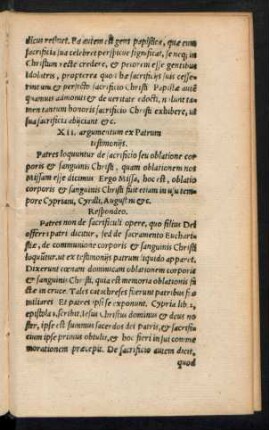 dicus retinet. Ea autem est gens papistica, quæ cum
sacrificia sua celebret perspicue significat, se neq; in
Christum recte credere, & priorem esse gentibus
idolatris, propterea quod hæ sacrificijs suis cesserint
uni & perfecto sacrificio Christi. Papistæ autē
quamuis admoniti & de ueritate edocti, nondum tamen
tantum honoris sacrificio Christi exhibere, ut
sua sacrificia abijciant &c.
XII. argumentum ex Patrum
testimonijs.
Patres loquuntur de sacrificio seu oblatione corporis
& sanguinis Christi, quam oblationem nos
Missam esse dicimus Ergo Missa, hoc est, oblatio
corporis & sanguinis Christi fuit etiam in usu tempore
Cypriani, Cyrilli, Augustini &c.
Respondeo.
Patres non de sacrificij opere, quo filius Dei
offerri patri dicitur, sed de sacramento Eucharistiæ,
de communione corporis & sanguinis Christi
loquūtur, ut ex testimonijs patrum liquido apparet.
Dixerunt cœnam dominicam oblationem corporis
& sanguinis Christi, quia est memoria oblationis factæ
in cruce. Tales catachreses fuerunt patribus familiares
Et patres ipsi se exponunt. Cypria. lib. 2.
epistola 3. scribit, Iesus Christus dominus & deus noster,
ipse est summus sacerdos dei patris, & sacrificium
ipse primus obtulit, & hoc fieri in sui commemorationem
præcepit. De sacrificio autem dicit,
quod